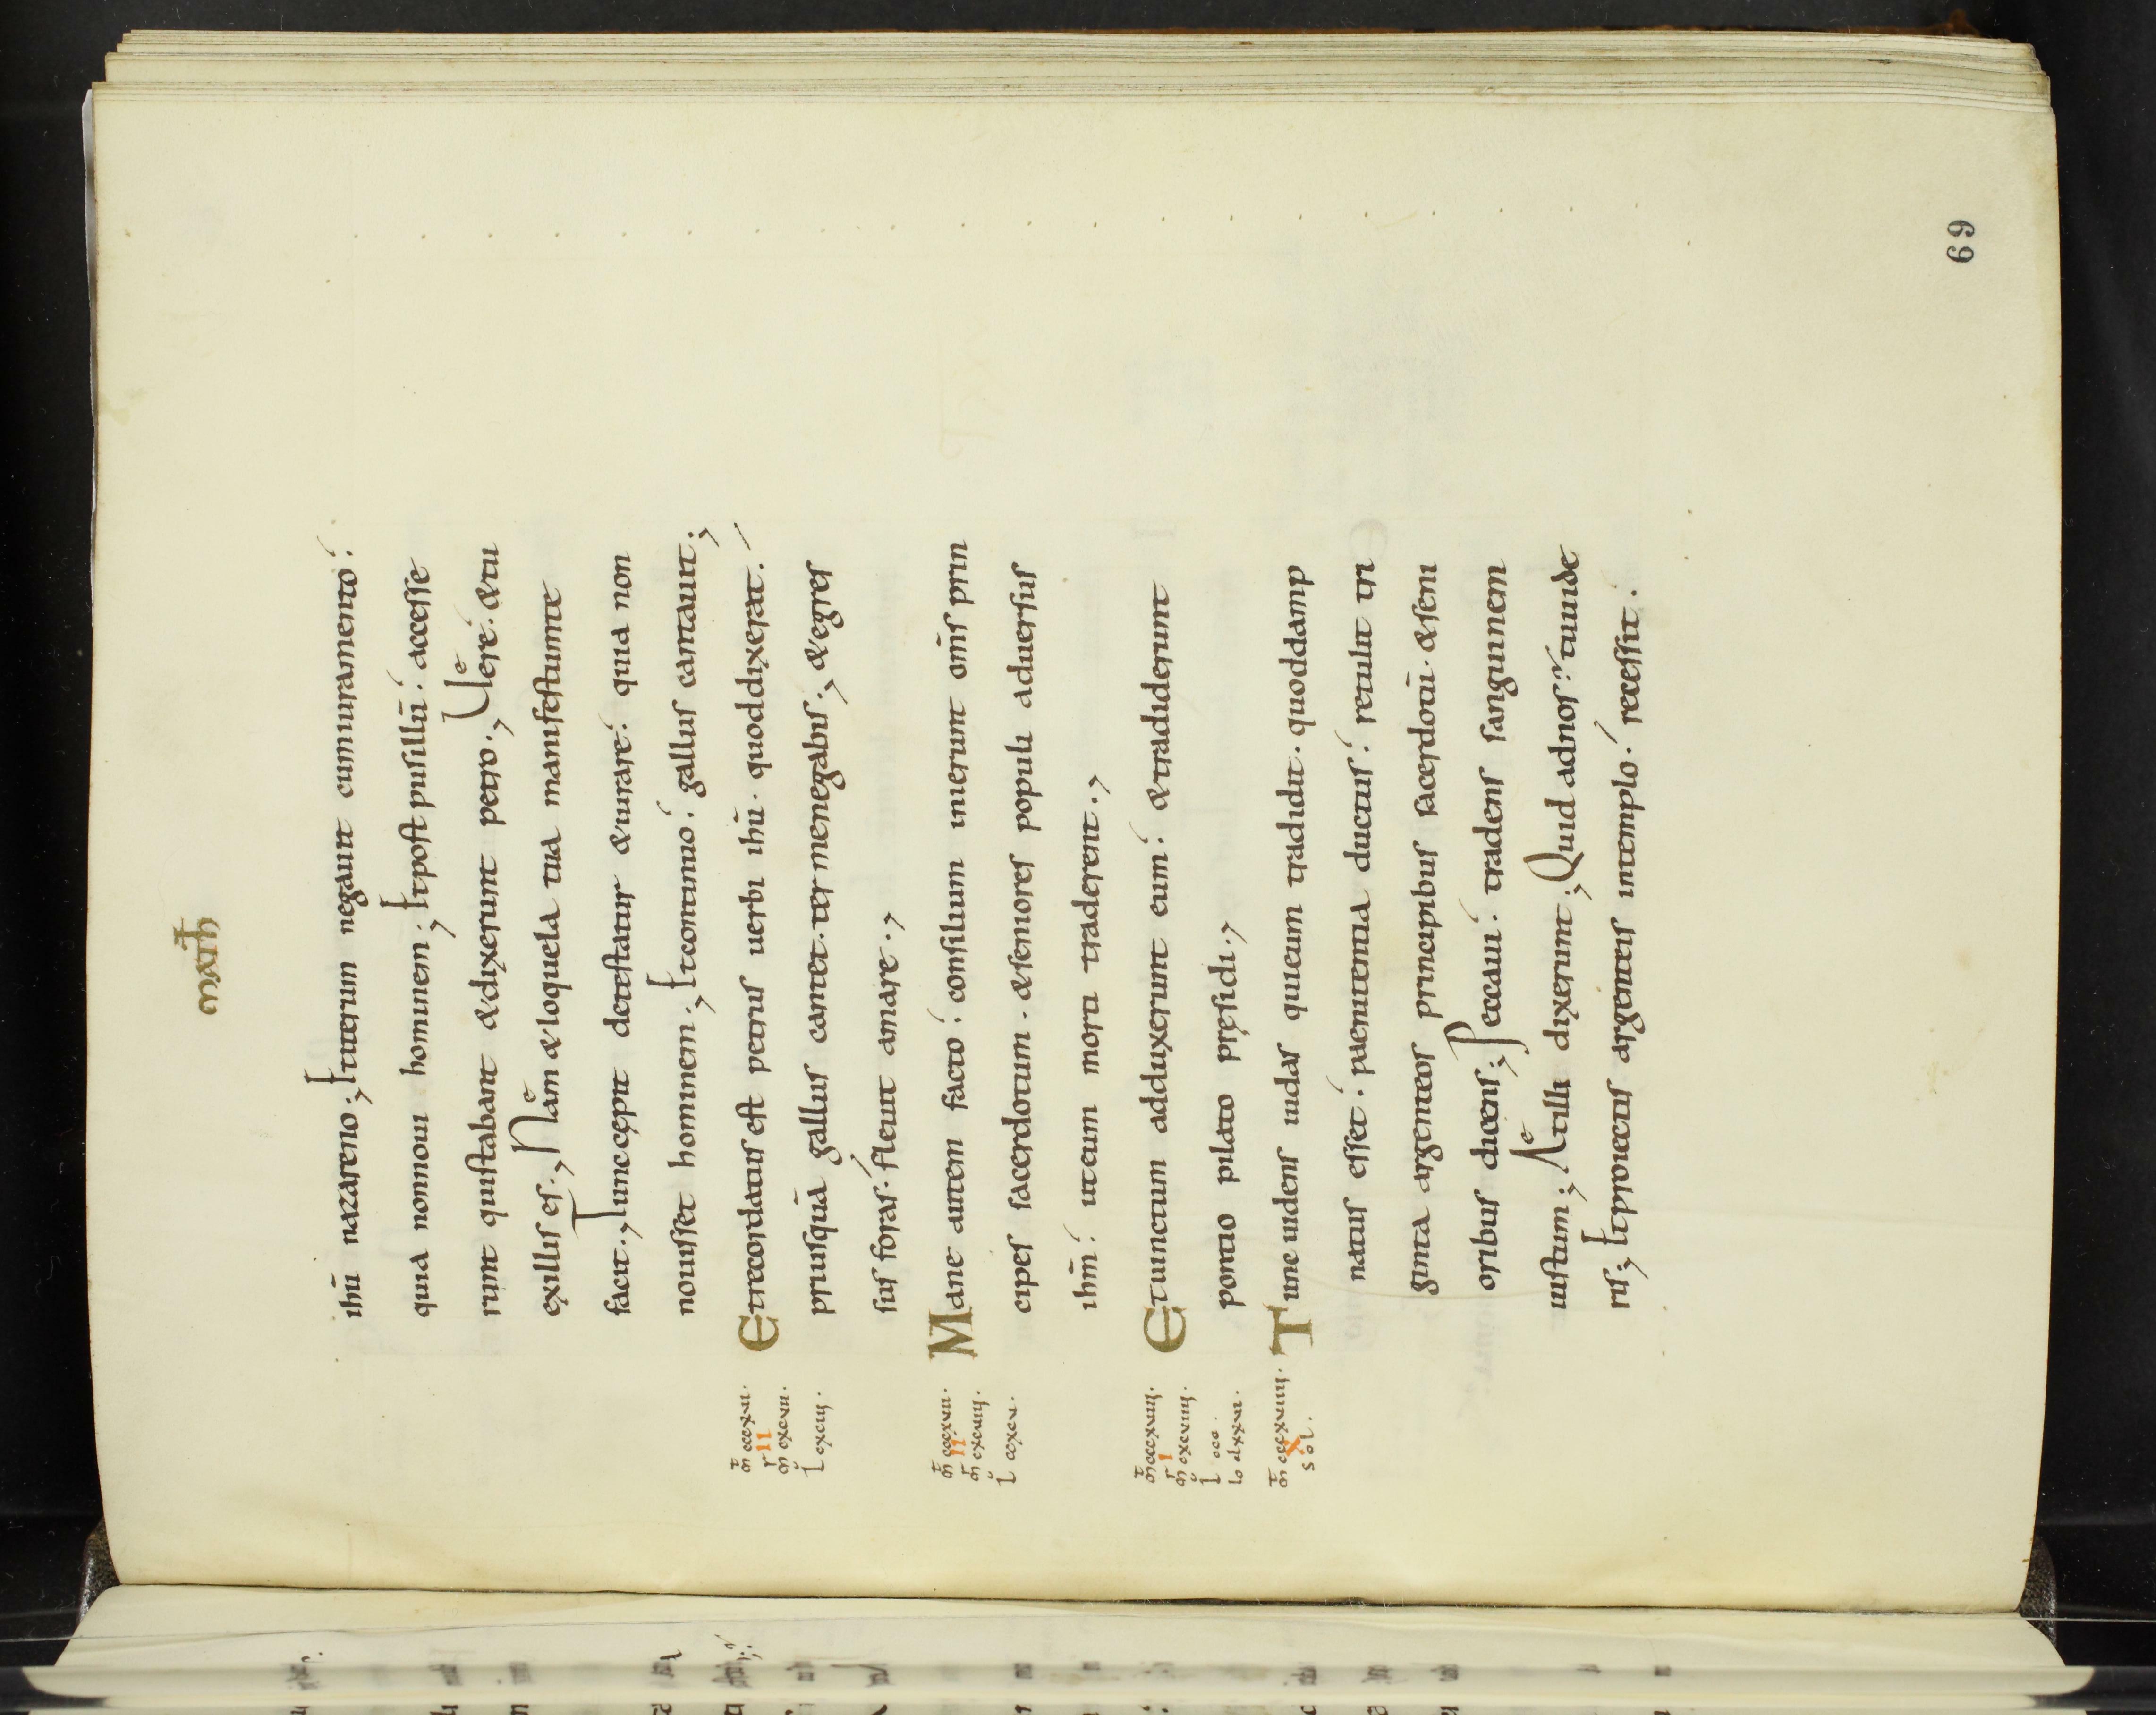 math
69
ihū nazareno; Etiterum negauit cumiuramento:
quia nonnoui hominem; Etpost pusillū: accesse
runt quistabant &dixerunt petro; Uere. &tu
exillis es; Nam &loquela tua manifestumte
facit; Tunccępit detestatur &iurare: quia non
nouisset hominem; Etcontinuo: gallus cantauit;
Etrecordatus est petrus uerbi ihū. quoddixerat.
priusquā gallus cantet. ter menegabis; &egres
sus foras. fleuit amare;
Mane autem facto: consilium inierunt om̄s prin
cipes sacerdotum. &seniores populi aduersus
ihm̄: uteum morti traderent;
Etuinctum adduxerunt eum: &tradiderunt
pontio pilato pręsidi;
Tunc uidens iudas quieum tradidit. quoddamp
natus esset. paenitentia ductus: retulit tri
ginta argenteos principibus sacerdotū. &seni
oribus dicens; Peccaui: tradens sanguinem
iustum; Atilli dixerunt; Quid adnos? tuuide
ris; Etproiectis argenteis intemplo. recessit.
m̄ cccxvi.
II
r cxcvii.
l cxciiij.
m̄ cccxvii.
II
m̄r cxcviiij.
l ccxcvi.
m̄ cccxviiij.
I
m̄r cxcviiij.
l ccc.
Io clxxvi.
m̄ cccxviiii.
X
sol.